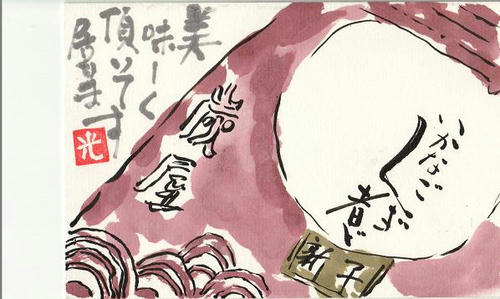 美
味しく
頂いて
居ります
光
いかなご
くぎ煮
新子